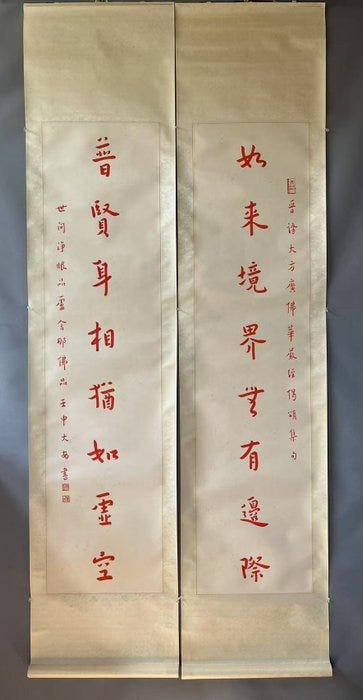 晋譯大方廣佛華嚴經偈頌集句
如来境界無有邊際
普賢身相猶如虛空
世间淨眼品盧舍那佛品 壬申大安書